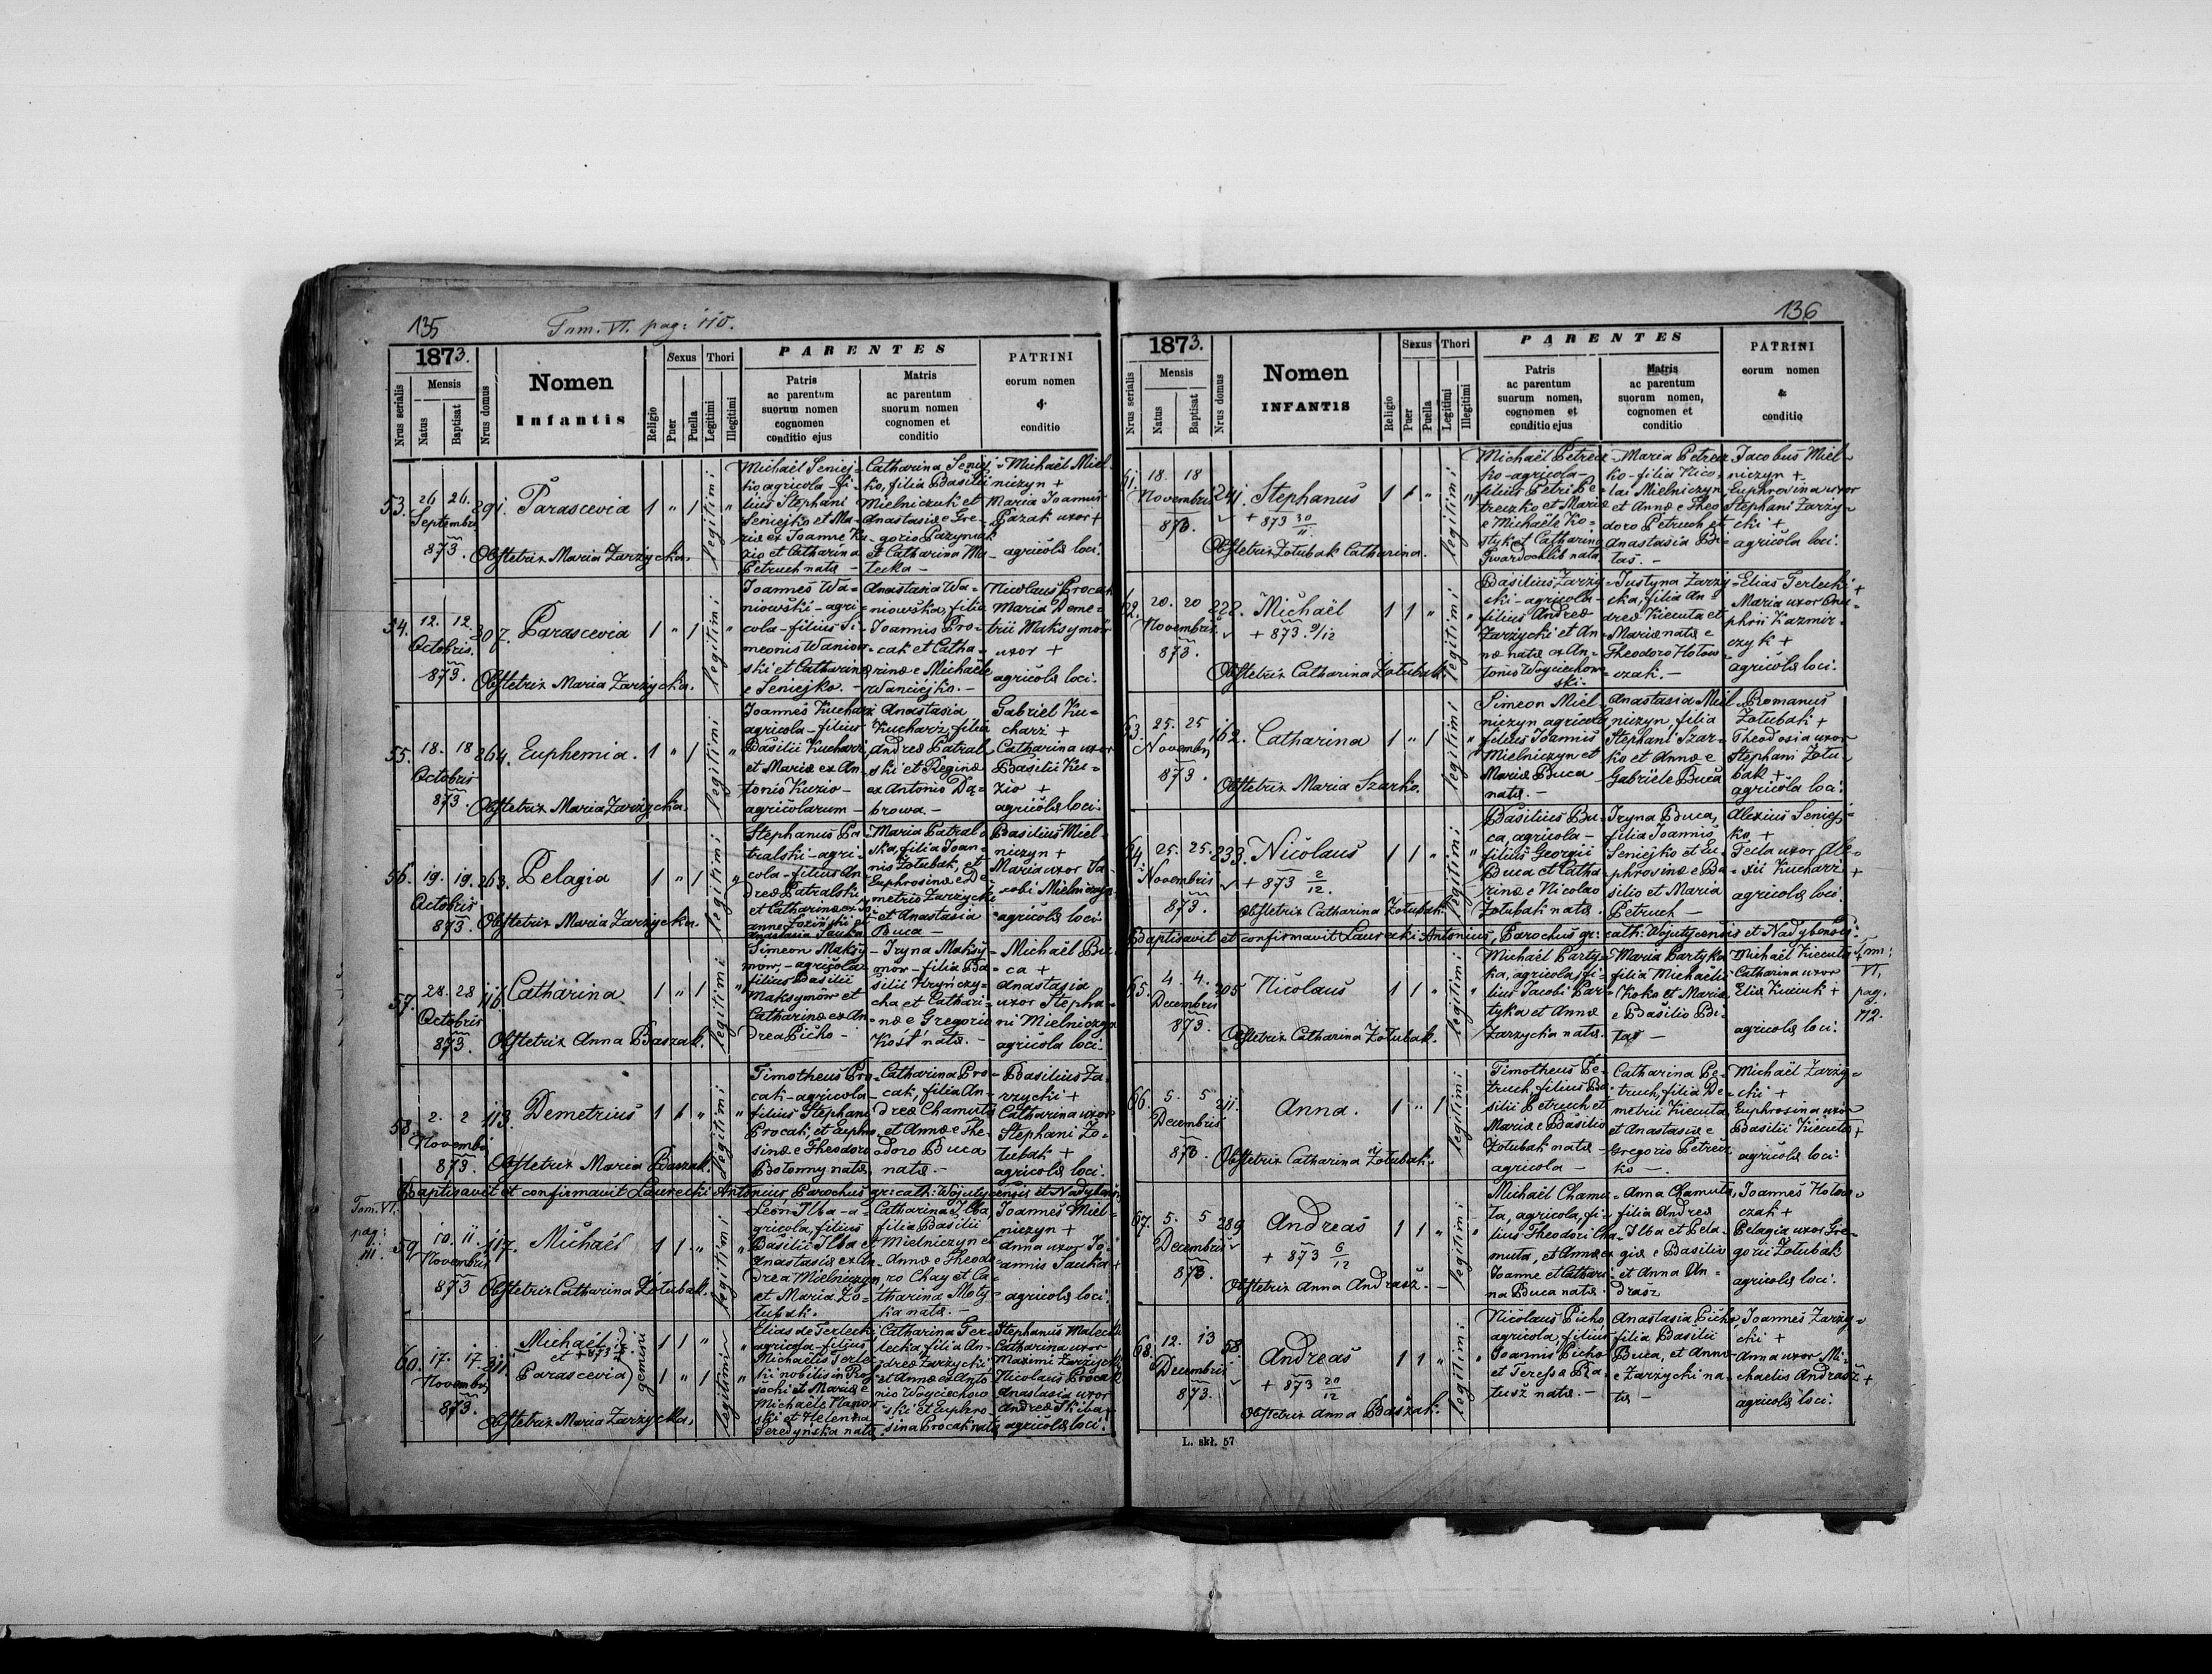 135
Tom. VI. pag: 110.
1873.
Nrus serialis
Mensis
Natus
Baptisat
Nrus domus
Nomen
Infantis
Religio
Sexus
Puer
Puella
Thori
Legitimi
Illegitimi
PARENTES
Patris
ac parentum
suorum nomen
cognomen
conditio ejus
Matris
ac parentum
suorum nomen
cognomen et
conditio
PATRINI
eorum nomen
&
conditio
53.
26 26.
Septembris
873.
291.
Parascevia
1 " 1
legitimi
"
Obstetrix Maria Zarzycka.
Michaël Seniej-
ko agricola - fi-
lius Stephani
Seniejko et Ma-
riæ ex Joanne Ku-
zio et Catharina
Petruch natæ -
Catharina Seniej-
ko, filia Basilii
Mielniczuk et
Anastasiæ e Gre-
gorio Pazyniak
et Catharina Ma-
tecka -
Michaël Miel-
niczyn +
Maria Joannis
Pazak uxor +
agricolæ loci.
54.
12. 12.
Octobris.
873.
307.
Parascevia
1 " 1
legitimi
"
Obstetrix Maria Zarzycka.
Joannes Wa-
niowski - agri-
cola - filius Si-
meonis Waniow-
ski et Catharinæ
e Seniejko. -
Anastasia Wa-
niowska, filia
Joannis Pro-
cak et Catha-
rinæ e Michaële
Waniejko. -
Nicolaus Procak
Maria Deme-
trii Maksymów
uxor +
agricolæ loci.
55.
18. 18
Octobris
873.
264.
Euphemia.
1 " 1
legitimi
"
Obstetrix Maria Zarzycka.
Joannes Kucharz
agricola - filius
Basilii Kucharz
et Mariæ ex An-
tonio Kuzio -
agricolarum -
Anastasia
Kucharz, filia
Andreæ Patral-
ski et Reginæ
ex Antonio Dą-
browa. -
Gabriel Ku-
charz +
Catharina uxor
Basilii Ku-
zio +
agricolæ loci.
56.
19. 19.
Octobris
873.
263.
Pelagia
1 " 1
legitimi
"
Obstetrix Maria Zarzycka.
Stephanus Pa-
tralski - agri-
cola - filius An-
dreæ Patralski
et Catharinæ ex Jo-
anne Łoziński et
Anastasia Sauka
Maria Patral-
ska, filia Joan-
nis Żołubak, et
Euphrosinæ e De-
metrio Zarzycki
et Anastasia
Buca -
Basilius Miel-
niczyn +
Maria uxor Ja-
cobi Mielniczyn
agricolæ loci.
57.
28. 28
Octobris
873.
116.
Catharina
1 " 1
legitimi
"
Obstetrix Anna Baszak.
Simeon Maksy-
mow, - agricola
filius Basilii
Maksymów et
Catharinæ ex An-
drea Picho -
Iryna Maksy-
mow - filia Ba-
silii Hryńczy-
cha et Cathari-
næ e Gregorio
Kość natæ. -
Michaël Bu-
ca +
Anastasia
uxor Stepha-
ni Mielniczyn
agricola loci.
58.
2. 2
Novembris
873.
113.
Demetrius
1 1 "
legitimi
"
Obstetrix Maria Baszak.
Timotheus Pro-
cak - agricola -
filius Stephani
Procak, et Euphro-
sinæ e Theodoro
Botonny natæ,
Catharina Pro-
cak, filia An-
dreæ Chamuta
et Annæ e The-
odoro Buca
natæ. -
Basilius Za-
rzycki +
Catharina uxor
Stephani Żo-
łubak +
agricolæ loci.
Baptisavit et confirmavit Laurecki Antonius, Parochus gr: cath: Wojutycensis et Nadybensis
Tom. VI.
pag:
111.
59.
10. 11.
Novembris
873
117.
Michaël
1 1 "
legitimi
"
Obstetrix Catharina Żołubak.
Leon Ilba - a-
gricola, filius
Basilii Ilba et
Anastasiæ ex An-
drea Mielniczyn,
et Maria Żo-
łubak.
Catharina Ilba,
filia Basilii
Mielniczyn et
Annæ e Theodo-
ro Chay et Ca-
tharina Moty-
ka natæ. -
Joannes Miel-
niczyn +
Anna uxor Jo-
annis Sauka +
agricolæ loci.
60.
17. 17.
Novembris
873.
311.
Michaël
et
Parascevia
gemini
1 1 "
1 " 1
legitimi
"
Obstetrix Maria Zarzycka.
Elias de Terlecki
agricola - filius
Michaëlis Terlec-
ki nobilis in
et Mariæ e
Michaële
ski et Helenna
Seredynska natæ
Catharina Ter-
lecka, filia An-
dreæ Zarzycki
et Annæ ex Anto-
nio Woyciechow-
ski et Euphro-
sina Procak natæ
Stephanus Matecki
Catharina uxor
Maximi Zarzycki
Nicolaus Procak
Anastasia uxor
Andreæ Skiba +
agricolæ loci.
136
1873.
Nrus serialis
Mensis
Natus
Baptisat
Nrus domus
Nomen
INFANTIS
Religio
Sexus
Puer
Puella
Thori
Legitimi
Illegitimi
PARENTES
Patris
ac parentum
suorum nomen,
cognomen et
conditio ejus
Matris
ac parentum
suorum nomen,
cognomen et
conditio
PATRINI
eorum nomen
&
conditio
61.
18. 18
Novembris
873.
241.
Stephanus
+ 873 30/11.
1 1 "
legitimi
"
Obstetrix Żołubak Catharina.
Michaël Petrecz-
ko - agricola -
filius Petri Pe-
treczko et Mariæ
e Michaële Ko-
styk et Catharina
natæ
Maria Petrecz-
ko - filia Nico-
lai Mielniczyn
et Annæ e Theo-
doro Petruch et
Anastasia Bi-
taś. -
Jacobus Miel-
niczyn +
Euphrosina uxor
Stephani Zarzy-
cki +
agricola loci.
62.
20. 20
Novembris
873.
222.
Michaël
+ 873. 9/12
1 1 "
legitimi
"
Obstetrix Catharina Żołubak.
Basilius Zarzy-
cki - agricola -
filius Andreæ
Zarzycki et An-
næ natæ ex An-
tonio Woyciechow-
ski.
Justyna Zarzy-
cka, filia An-
dreæ Kiecuta et
Mariæ natæ e
Theodoro Hołow-
czak. -
Elias Terlecki +
Maria uxor Onu-
phrii Kazmir-
czyk +
agricolæ loci.
63.
25. 25
Novembr.
873.
162.
Catharina
1 " 1
legitimi
"
Obstetrix Maria Szarko.
Simeon Miel-
niczyn agricola
filius Joannis
Mielniczyn et
Mariæ Buca
natæ. -
Anastasia Miel-
niczyn, filia
Stephani Szar-
ko et Annæ e
Gabriele Buca
Romanus
Żołubak +
Theodosia uxor
Stephani Żołu-
bak +
agricola loci.
64.
25. 25.
Novembris
873.
233.
Nicolaus
+ 873 2/12.
1 1 "
legitimi
"
Obstetrix Catharina Żołubak.
Basilius Bu-
ca, agricola -
filius Georgii
Buca et Catha-
rinæ e Nicolao
Żołubak natæ.
Iryna Buca,
filia Joannis
Seniejko et Eu-
phrosinæ e Ba-
silio et Maria
Petruch -
Alexius Seniej-
ko +
Tecla uxor Ale-
xii Kucharz +
agricolæ loci.
Baptisavit et confirmavit Laurecki Antonius, Parochus gr: cath: Wojutycensis et Nadybensis.
65.
4. 4.
Decembris
873.
205
Nicolaus
1 1 "
legitimi
"
Obstetrix Catharina Żołubak.
Michaël Party-
ka, agricola, fi-
lius Jacobi Par-
tyka et Annæ
Zarzycka natæ.
Maria Partyka
filia Michaëlis
Koko et Mariæ
e Basilio Bi-
taś -
Michaël Kiecuta
Catharina uxor
Eliæ Kuciuk +
agricolæ loci.
Tom:
VI.
pag.
112.
66.
5. 5
Decembris
873.
211.
Anna.
1 " 1
legitimi
"
Obstetrix Catharina Żołubak.
Timotheus Pe-
truch, filius Ba-
silii Petruch et
Mariæ e Basilio
Żołubak natæ
agricola -
Catharina Pe-
truch, filia De-
metrii Kiecuta,
et Anastasiæ e
Gregorio Petrecz-
ko -.
Michaël Zarzy-
cki +
Euphrosina uxor
Basilii Kiecuta +
agricolæ loci.
67.
5. 5
Decembris
873.
289
Andreas
+ 873 6/12
1 1 "
legitimi
"
Obstetrix Anna Andrasz. -
Michaël Chamu-
ta, agricola, fi-
lius Theodori Cha-
muta, et Annæ ex
Joanne et Cathari-
na Buca natæ.
Anna Chamuta,
filia Andreæ
Ilba et Pela-
giæ e Basilio
et Anna An-
drasz
Joannes Hołow-
czak +
Pelagia uxor Gre-
gorii Żołubak
agricolæ loci.
68.
12. 13
Decembris
873.
58.
Andreas
+ 873 20/12
1 1 "
legitimi
"
Obstetrix Anna Baszak.
Nicolaus Picho,
agricola, filius
Joannis Picho
et Teressa Ra-
tusz natæ. -
Anastasia Picho,
filia Basilii
Buca, et Annæ
e Zarzycki na-
tæ -
Joannes Zarzy-
cki +
Anna uxor Mi-
chaelis Andrasz +
agricolæ loci.
L. skł. 57